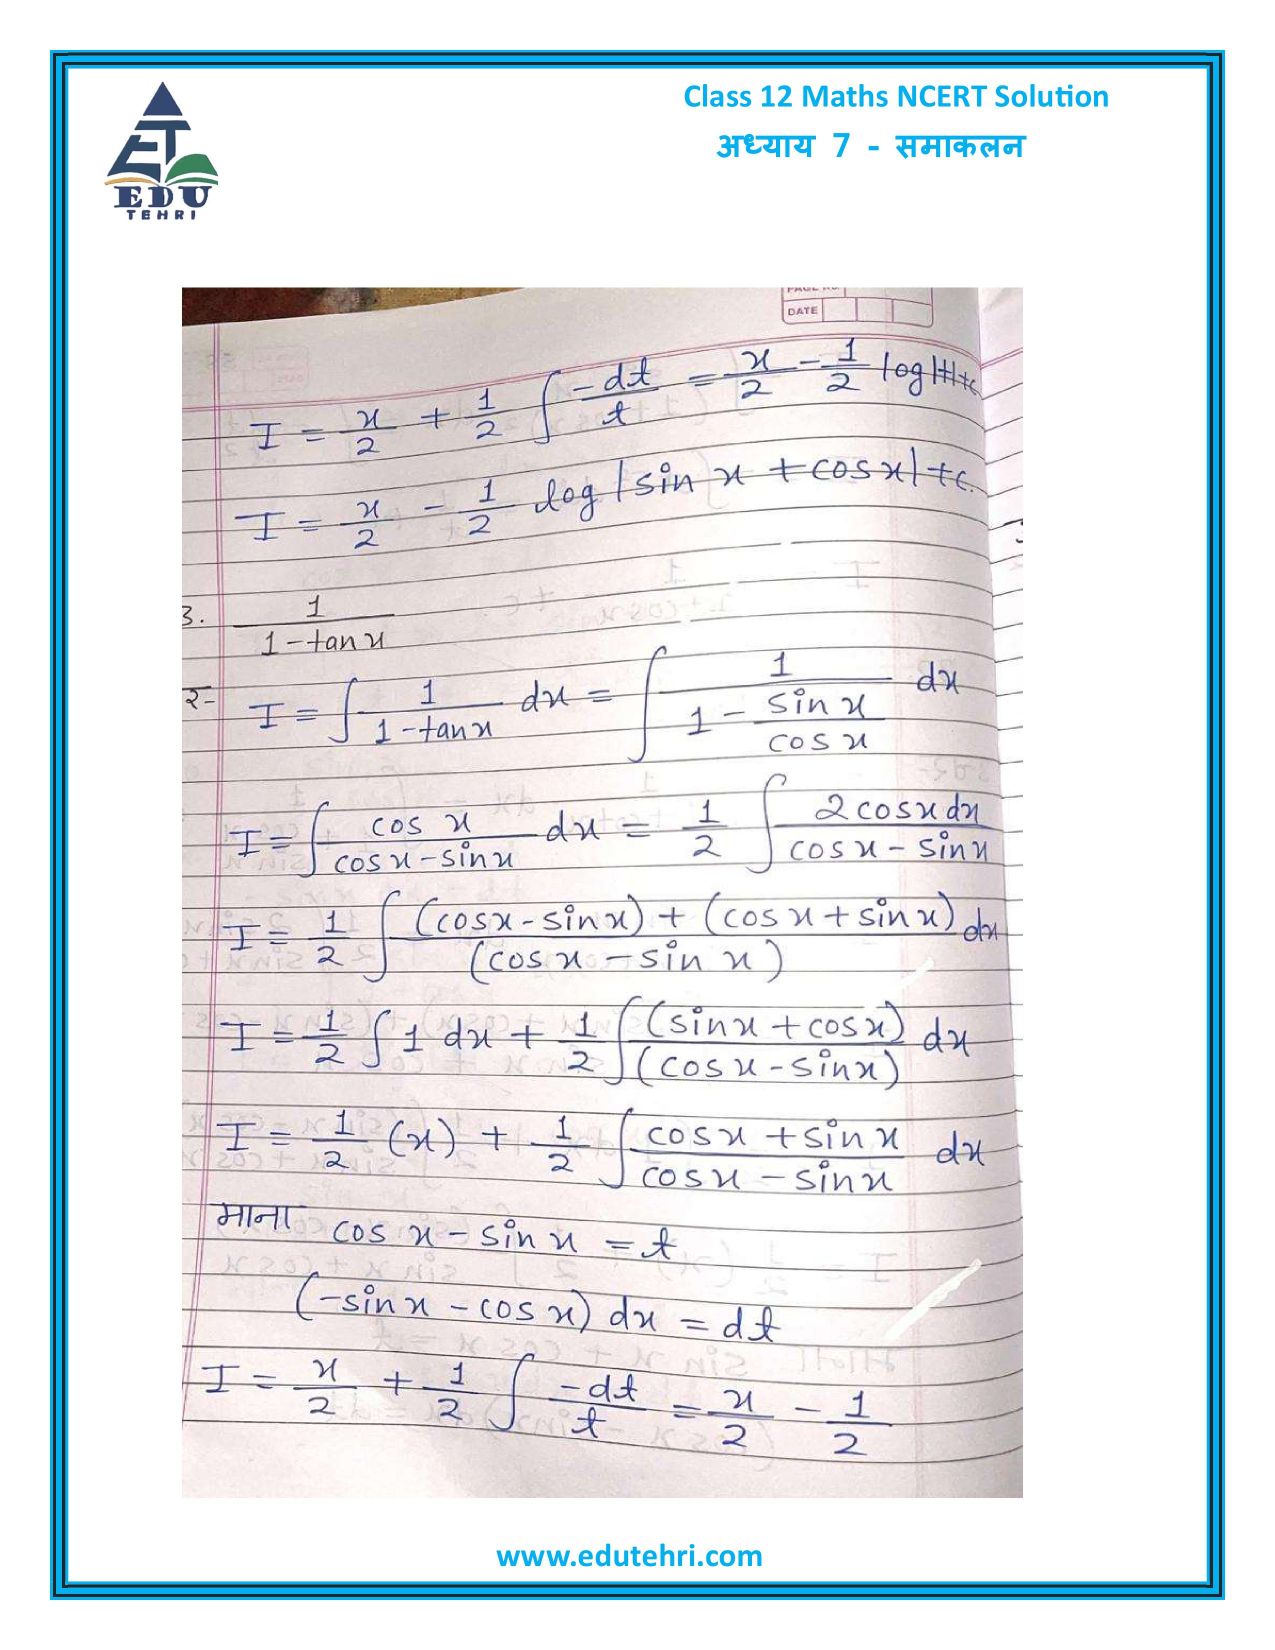 Class 12 Maths NCERT Solution
अध्याय 7 - समाकलन
EDU
TEHRI
DATE
I = x/2 + 1/2 ∫ -dt/t = x/2 - 1/2 log|t|+c
I = x/2 - 1/2 log|sin x + cos x|+c.
3. 1/(1-tan x)
I = ∫ 1/(1-tan x) dx = ∫ 1/(1 - sin x/cos x) dx
I = ∫ cos x/(cos x - sin x) dx = 1/2 ∫ 2 cos x dx/(cos x - sin x)
I = 1/2 ∫ ((cos x - sin x) + (cos x + sin x))/(cos x - sin x) dx
I = 1/2 ∫ 1 dx + 1/2 ∫ (sin x + cos x)/(cos x - sin x) dx
I = 1/2 (x) + 1/2 ∫ (cos x + sin x)/(cos x - sin x) dx
माना cos x - sin x = t
(-sin x - cos x) dx = dt
I = x/2 + 1/2 ∫ -dt/t = x/2 - 1/2
www.edutehri.com